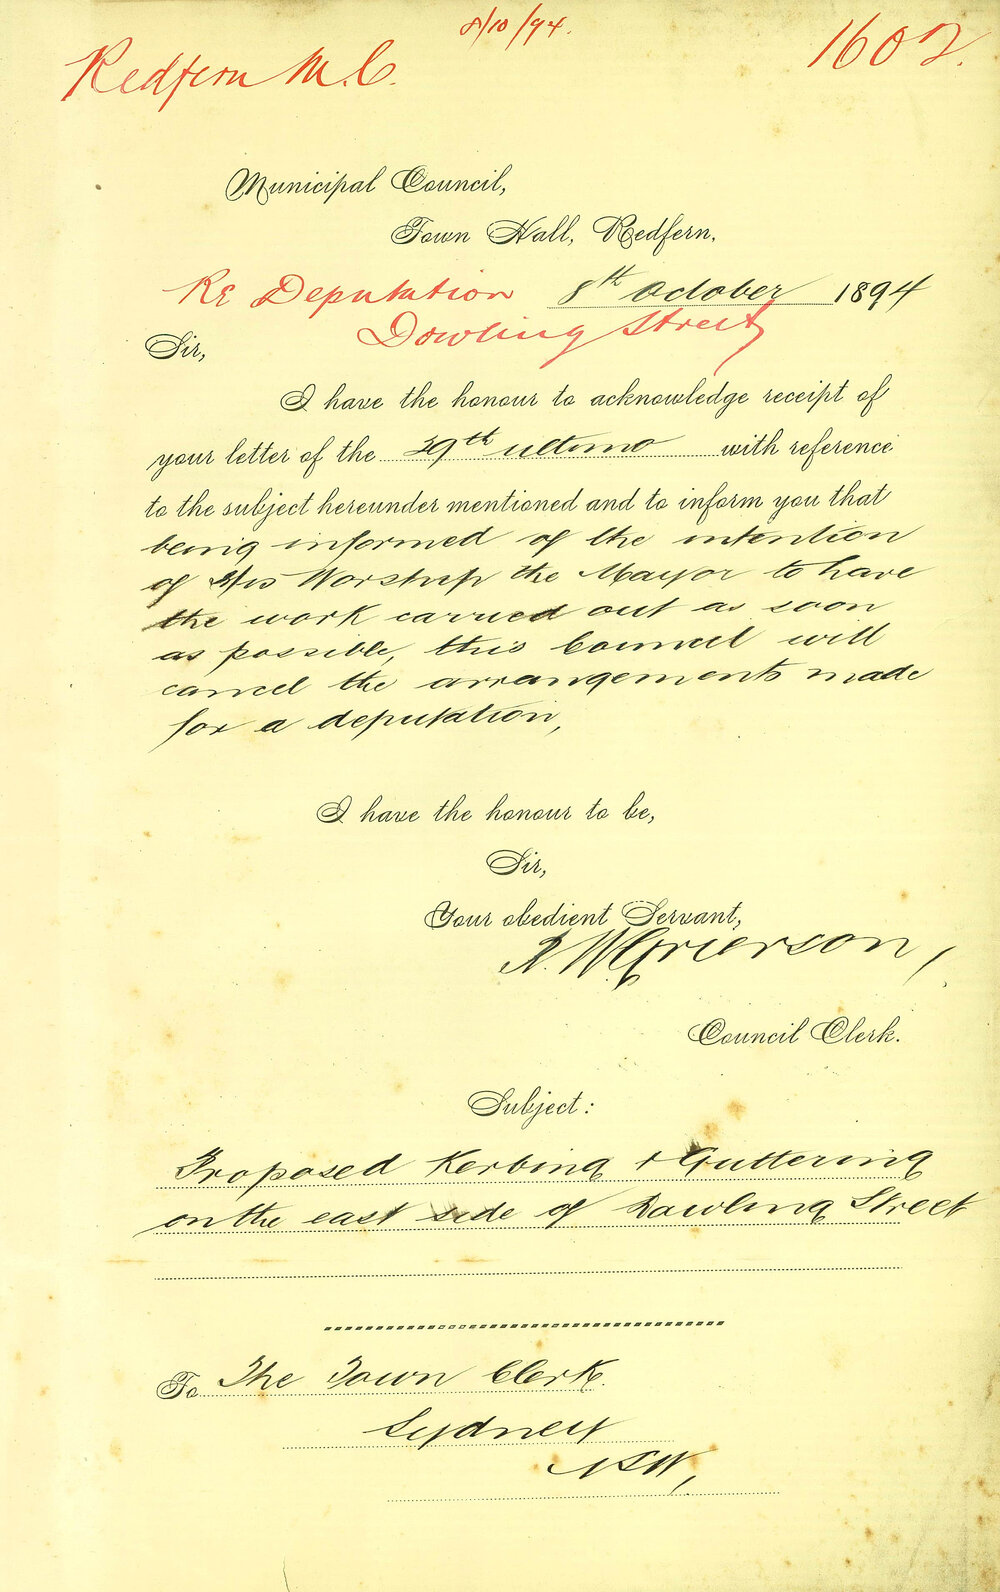 8/10/94.
Redfern M.C.
1602.
Municipal Council,
Town Hall, Redfern,
Re Deputation 8th October 1894
Dowling Street
Sir,
I have the honour to acknowledge receipt of
your letter of the 29th ultimo with reference
to the subject hereunder mentioned and to inform you that
being informed of the intention
of His Worship the Mayor to have
the work carried out as soon
as possible, this Council will
cancel the arrangements made
for a deputation,
I have the honour to be,
Sir,
Your obedient Servant,
Grierson,
Council Clerk.
Subject:
Proposed Kerbing & Guttering
on the east side of Dowling Street
To The Town Clerk.
Sydney
NSW,